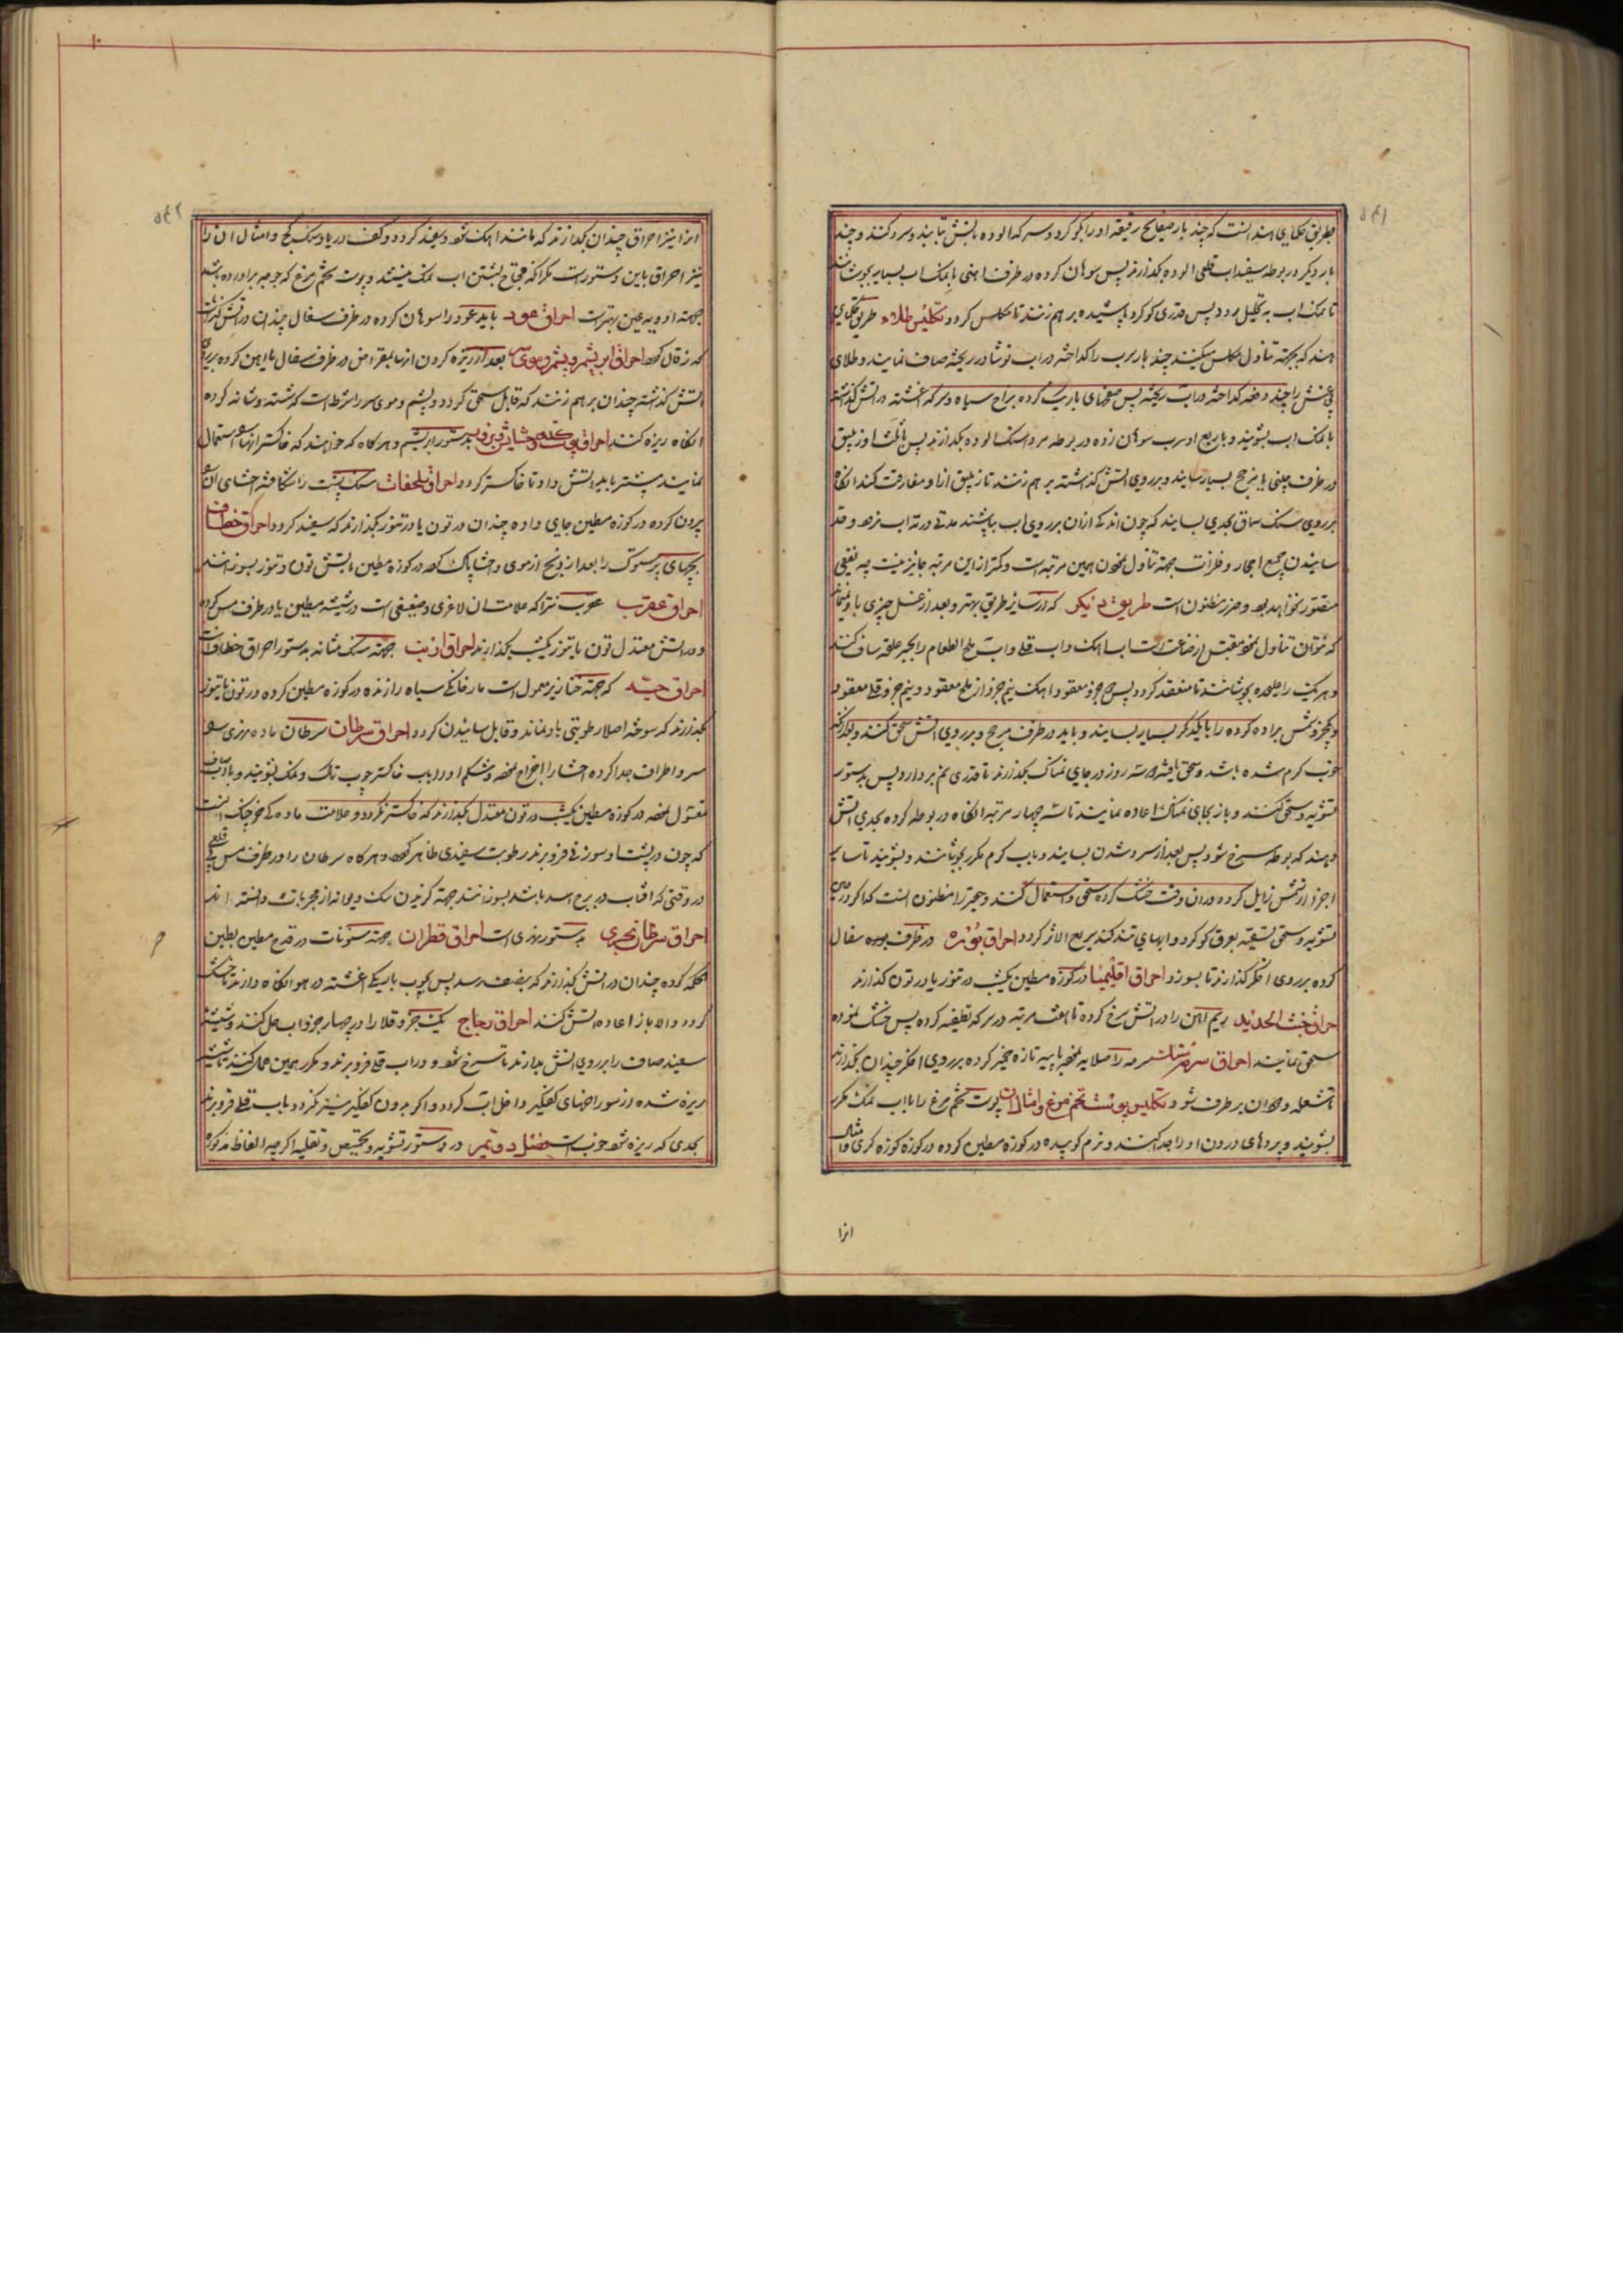 بطریق حکمای هند انست که چند بار صفایح رقیقه او را بکوکرد و سرکه الوده باتش بتابند و سرد کنند و چند
بار دیکر در بوطه سفیداب قلعی الوده بکدازند پس سوهان کرده در ظرف اهنی با نمک اب بسیار بجوشانند
تا نمک اب به تحلیل رود پس قدری کوکرد پاشیده بر هم زنند تا مکلس کردد تکلیس طلاء طریق حکمای
هند که بجهته تناول مکلس میکنند چند بار سرب را کداخته در اب نوشادر ریخته صاف نمایند و طلای
بی غش را چند دفعه کداخته در اب ریخته پس صفحهای باریک کرده بزاج سیاه و سرکه اغشته در اتش کذاشته
با نمک اب بشویند و با ربع او سرب سوهان زده در بوطه مرداسنک الوده بکدازند پس با ثلث او زیبق
در ظرف چینی یا مزجج بسیار بسایند و بر روی اتش کذاشته بر هم زنند تا زیبق ازو مفارقت کند انکاه
بر روی سنک سماق بحدی بسایند که چون اندکی از ان بر روی اب بپاشند مدتی در ته اب نرود و حد
سائیدن جمیع احجار و فلزات جهته تناول نمودن همین مرتبه است و کمتر از این مرتبه جایز نیست چه نفعی
متصور نخواهد بود و ضرر مظنون است طریق دیکر که از سایر طریق بهتر و بعد از غسل چیزی با او نمیماند
که توان تناول نمود مقتبس از صناعت است اب اهک و اب قلی و اب ملح الطعام را بجر علقه صاف کنند
و هر یک را علیحده بجوشانند تا منعقد کردد پس جزو معقود اهک نیم جزو از ملح معقود و نیم جزو قلی معقود
و یکجزو شمس براده کرده را با یکدیکر بسیار بسایند و باید در ظرف مزجج و بر روی اتش سحق کنند و بعد از انکه
خوب کرم شده باشد و سحق یافته سه روز در جای نمناک بکذارند تا قدری نم بردارد پس بدستور
تشویه و سحق کنند و باز بجای نمناک اعاده نمایند تا سه چهار مرتبه انکاه در بوطه کرده بحدی اتش
دهند که بوطه سرخ شود پس بعد از سرد شدن بسایند و باب کرم مکرر بجوشانند و بشویند تا سایر
اجزا از شمس زایل کردد در ان وقت خشک کرده سحق و استعمال کنند و حقیر را مظنون انست که اکر در حین
تشویه و سحق تسقیه بعرق کوکرد و ابهای تند کنند سریع الاثر کردد احراق بوره در ظرف سفال
کرده بر روی اخکر کذارند تا بسوزد احراق اقلیمیا در کوزه مطین یکشب در تنور یا در تون کذارند
احراق خبث الحدید ریم اهن را در اتش سرخ کرده تا هفت مرتبه در سرکه تطفیه کرده پس خشک نموده
سحق نمایند احراق سرمه سرمه را صلایه نموده با پیه تازه خمیر کرده بر روی اخکر چندان بکذارند
تا شعله و دخان بر طرف شود تکلیس پوست تخم مرغ و امثال ان پوست تخم مرغ را با اب نمک مکرر
بشویند و پردهای درون او را جدا کنند و نرم کوبیده در کوزه مطین کرده در کوزه کوزه کری و امثال
انرا
انرا نیز احراق چندان بکذارند که مانند اهک شود و سفید کردد و کف دریا و سنک کج و امثال ان را
نیز احراق باین دستور است مکر انکه محتاج بشستن اب نمک نیستند و پوست تخم مرغ که جوجه بر اورده باشد
جهته ادویه عین بهتر است احراق عود باید عود را سوهان کرده در ظرف سفال چندان در اتش کذارند
که زقال شود احراق ابریشم و پشم و موی سر بعد از ریزه کردن انها بمقراض در ظرف سفال یا اهن کرده بر روی
اتش کذاشته چندان بر هم زنند که قابل سحق کردد و پشم و موی سر را شرط است که شسته و شانه کرده
انکاه ریزه کنند احراق بدستور ابریشم و هر کاه که خواهند که خاکستر انها استعمال
نمایند بیشتر باید اتش داد تا خاکستر کردد احراق سلحفات سنک پشت را شکافته احشای ان
بیرون کرده در کوزه مطین جای داده چندان در تون یا در تنور بکذارند که سفید کردد احراق خطاف
بچهای پرستوک را بعد از ذبح از موی و احشا پاک کرده در کوزه مطین باتش تون و تنور بسوزانند
احراق عقرب عقرب نر را که علامت ان لاغری و ضعیفی است در شیشه مطین یا در ظرف مس کرده
و در اتش معتدل تون یا تنور یکشب بکذارند احراق ارنب جهته سنک مثانه بدستور احراق خطاف است
احراق حیه که جهته خنازیر معمول است مار خانکی سیاه را زنده در کوزه مطین کرده در تون یا تنور
بکذارند که سوخته اصلا رطوبتی با او نماند و قابل سائیدن کردد احراق سرطان سرطان ماده نهری
سر و اطراف جدا کرده احشا را اخراج نموده و شکم او را باب خاکستر چوب تاک و نمک بشویند و باب صاف
مغسول نموده در کوزه مطین یکشب در تون معتدل بکذارند که خاکستر نکردد و علامت ماده خرچنک انست
که چون در پشت او سوزنی فرو برند رطوبت سفیدی ظاهر شود و هر کاه سرطان را در ظرف مس قلعی
در وقتی که افتاب در برج اسد باشد بسوزانند جهته کزیدن سک دیوانه از مجربات دانسته اند
احراق سرطان بحری بدستور نهری است احراق قطران جهته سنونات در قدح مطین بطین
حکمه کرده چندان در اتش بکذارند که بنصف رسد پس بچوب باریکی اغشته در هوا نکاه دارند تا خشک
کردد و الا باز اعاده اتش کنند احراق زجاج یک جزو قلا را در چهار جزو اب حل کنند و شیشه
سفید صاف را بر روی اتش بدارند تا سرخ شود و در اب قلی فرو برند و مکرر همین عمل کنند تا شیشه
ریزه شده از سوراخهای کفکیر داخل اب کردد و اکر بیرون کفکیر نیز کردد باب قلی فرو برند
بحدی که ریزه شود خوب است فصل دوم در دستور تشویه و تحمیص و تقلیه اکرچه الفاظ مذکوره